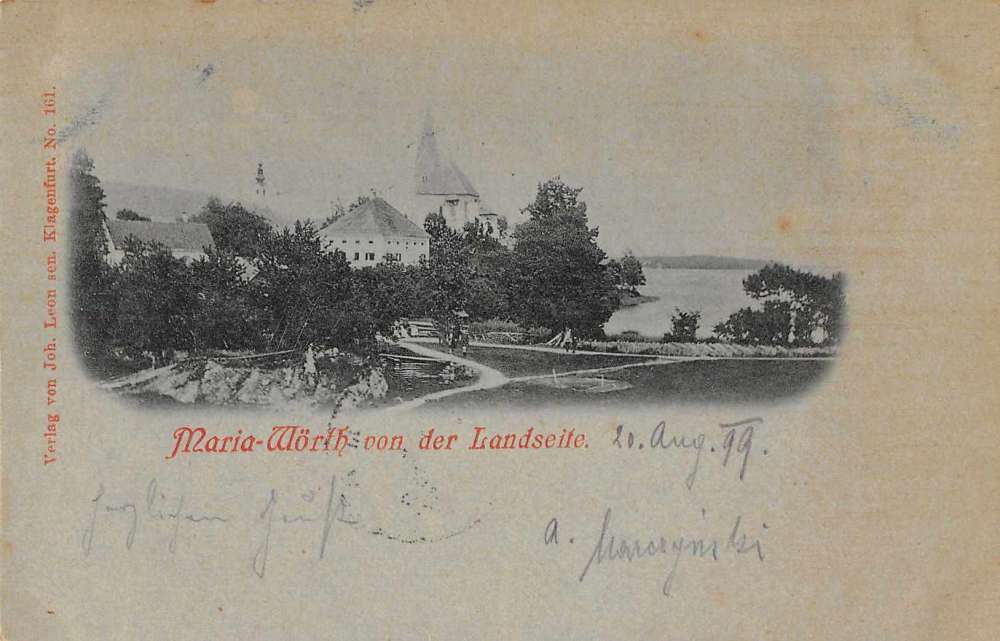 Verlag von Joh. Leon sen. Klagenfurt. No. 161.
Maria-Wörth von der Landseite.
20. Aug. 99.
Herzlichen Gruß
A.